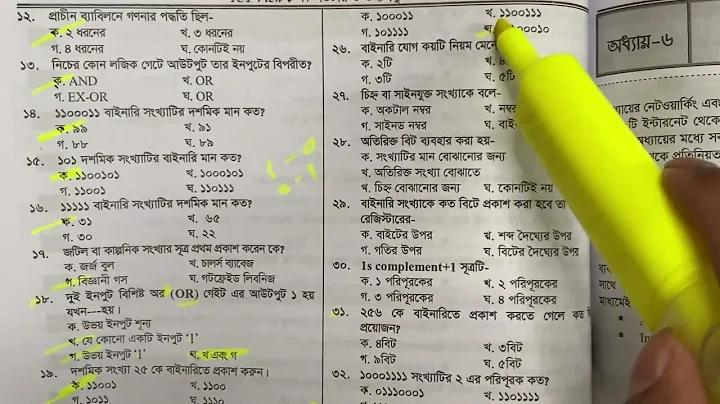 ১২. প্রাচীন ব্যাবিলনে গণনার পদ্ধতি ছিল-
ক. ২ ধরনের খ. ৩ ধরনের
গ. ৪ ধরনের ঘ. কোনটিই নয়
১৩. নিচের কোন লজিক গেটে আউটপুট তার ইনপুটের বিপরীত?
ক. AND খ. OR
গ. EX-OR ঘ. OR
১৪. ১১০০০১১ বাইনারি সংখ্যাটির দশমিক মান কত?
ক. ৯৯ খ. ৯১
গ. ৮৮ ঘ. ৮৯
১৫. ১০১ দশমিক সংখ্যাটির বাইনারি মান কত?
ক. ১১০০১০১ খ. ১০০০১০১
গ. ১১০০১ ঘ. ১১০১১১
১৬. ১১১১১ বাইনারি সংখ্যাটির দশমিক মান কত?
ক. ৩১ খ. ৬৫
গ. ৩০ ঘ. ২২
১৭. জটিল বা কাল্পনিক সংখ্যার সূত্র প্রথম প্রকাশ করেন কে?
ক. জর্জ বুল খ. চার্লস ব্যাবেজ
গ. বিজ্ঞানী গস ঘ. গটফ্রেইড লিবনিজ
১৮. দুই ইনপুট বিশিষ্ট অর (OR) গেইট এর আউটপুট ১ হয়
যখন---হয়।
ক. উভয় ইনপুট শূন্য
খ. যে কোনো একটি ইনপুট '1'
গ. উভয় ইনপুট '1' ঘ. খ এবং গ
১৯. দশমিক সংখ্যা ২৫ কে বাইনারিতে প্রকাশ করুন।
ক. ১১০০১ খ. ১১০০
গ. ১০১১ ঘ. ১১১০
ক. ১০০০১১ খ. ১১০০১১১
গ. ১০১১১১
২৬. বাইনারি যোগ কয়টি নিয়ম মেনে
ক. ২টি খ. ৪
গ. ৩টি ঘ. ৫টি
২৭. চিহ্ন বা সাইনযুক্ত সংখ্যাকে বলে-
ক. অকটাল নম্বর খ. নম্বর
গ. সাইনড নম্বর ঘ. বাই
২৮. অতিরিক্ত বিট ব্যবহার করা হয়-
ক. সংখ্যাটির মান বোঝানোর জন্য
খ. অতিরিক্ত সংখ্যা বোঝাতে
গ. চিহ্ন বোঝানোর জন্য ঘ. কোনটিই নয়
২৯. বাইনারি সংখ্যাকে কত বিটে প্রকাশ করা হবে তা
রেজিস্টারের-
ক. বাইটের উপর খ. শব্দ দৈর্ঘ্যের উপর
গ. গতির উপর ঘ. বিটের দৈর্ঘ্যের উপর
৩০. 1s complement+1 সূত্রটি-
ক. ১ পরিপূরকের খ. ২ পরিপূরকের
গ. ৩ পরিপূরকের ঘ. ৪ পরিপূরকের
৩১. ২৫৬ কে বাইনারিতে প্রকাশ করতে গেলে কত
প্রয়োজন?
ক. ৪বিট খ. ৩বিট
গ. ৯বিট ঘ. ৫বিট
৩২. ১০০০১১১১ সংখ্যাটির ২ এর পরিপূরক কত?
ক. ০১১১০০০১ খ. ১১০১১১১
অধ্যায়-৬
য়ের নেটওয়ার্কিং এব
টি ইন্টারনেট থেকে
ধ্যায়ের মধ্যে
কে প্রতিনিয়ত
সাথে
মাধ্যমেই